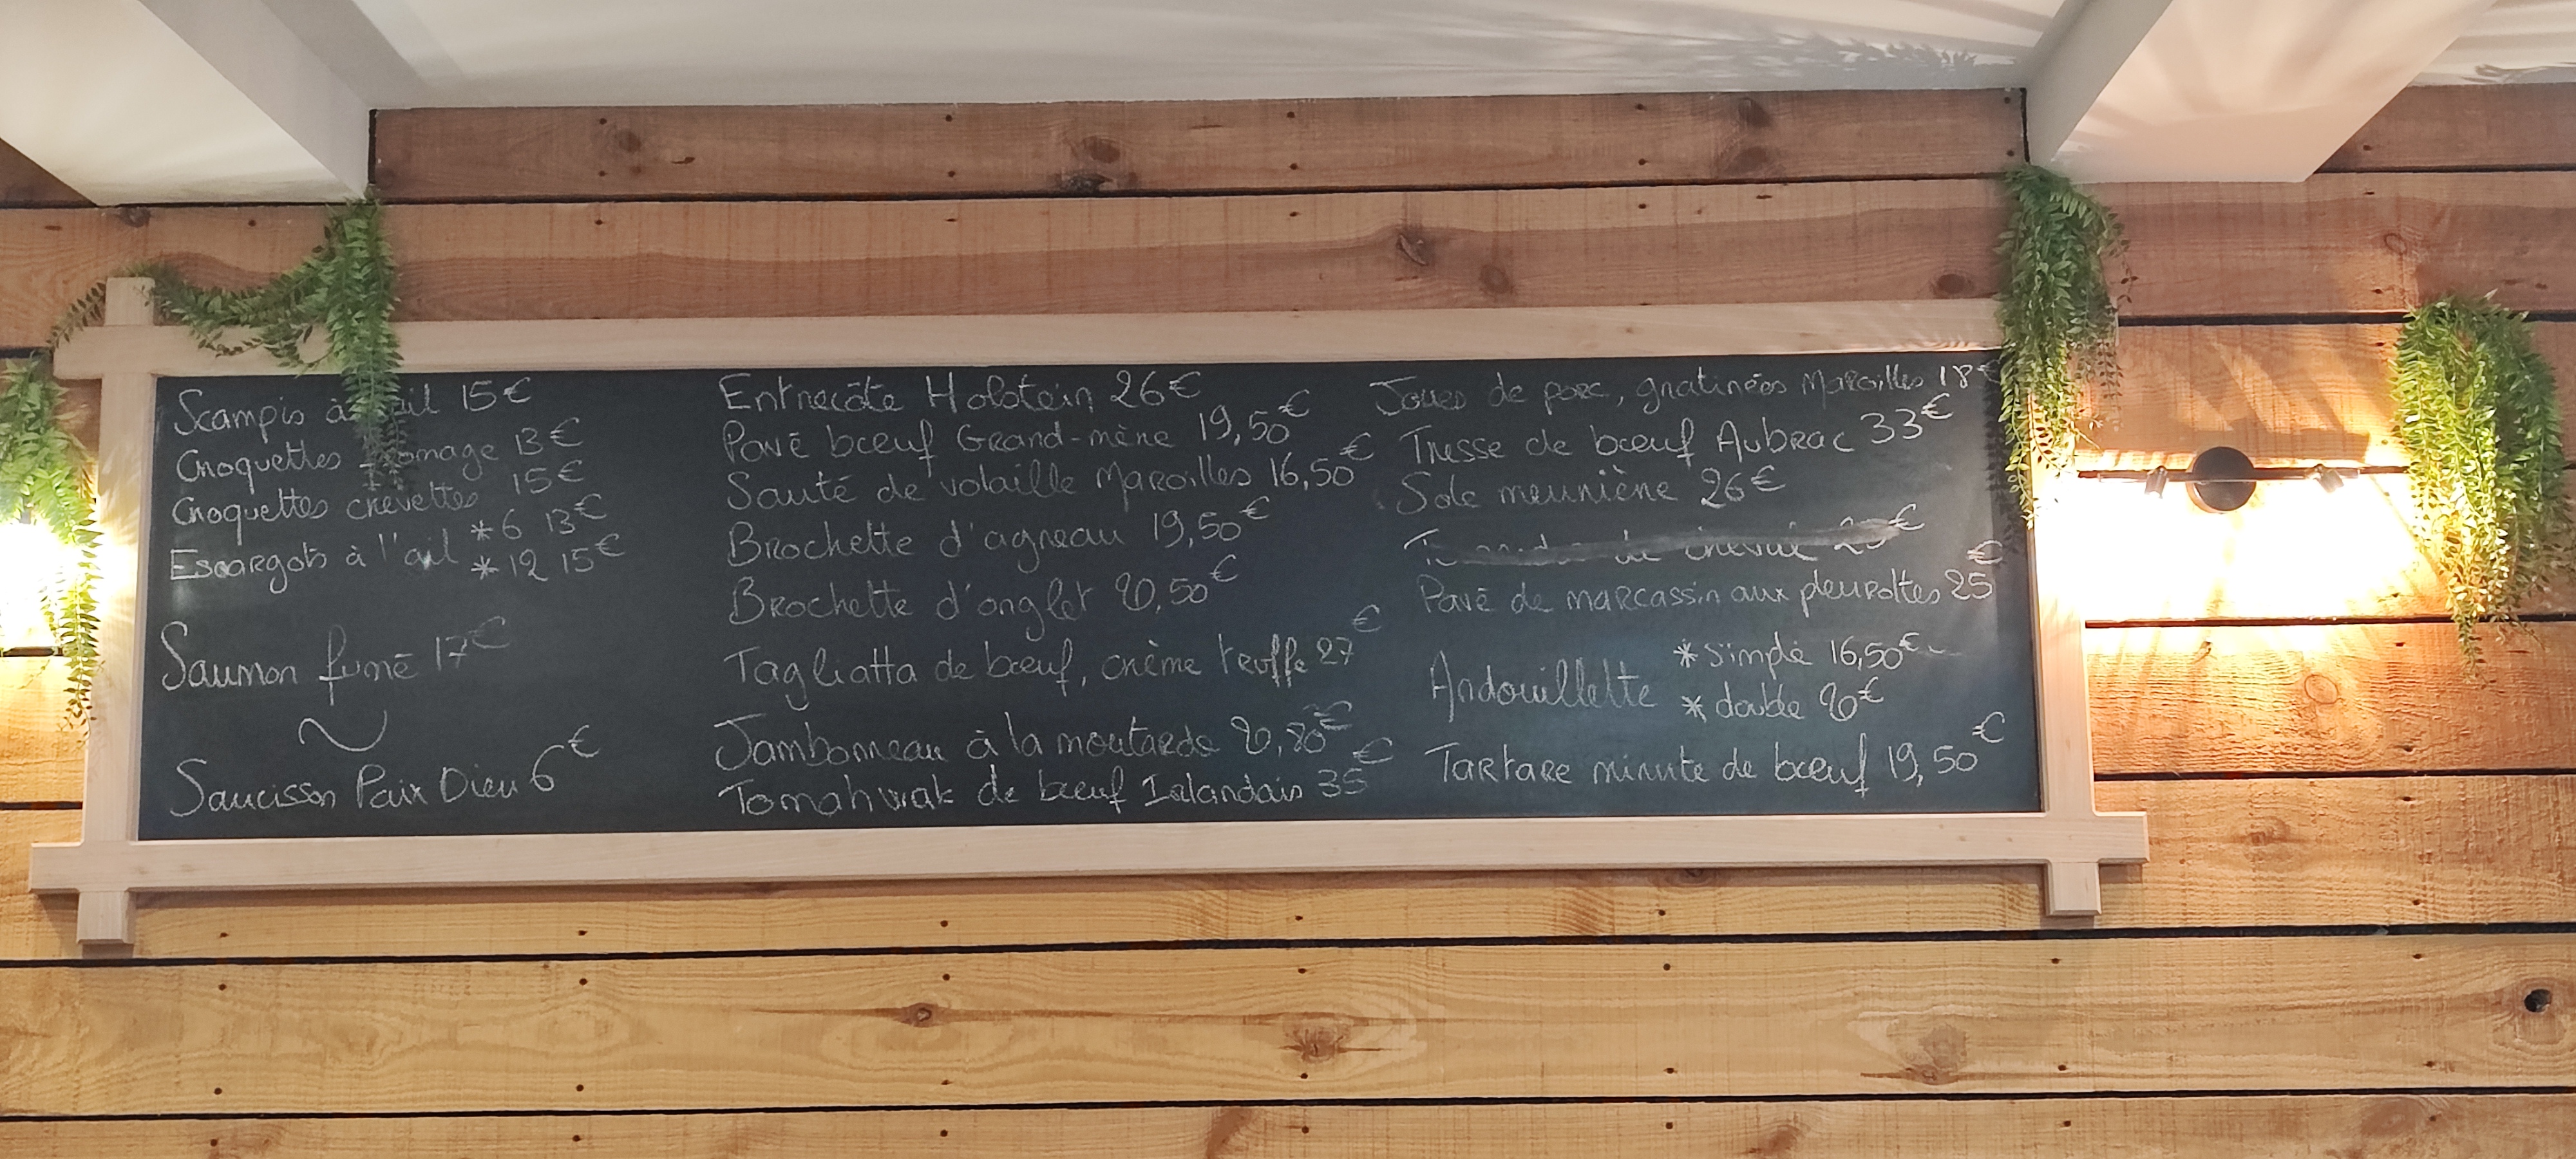 Scampis à ail 15€
Croquettes fromage 13€
Croquettes crevettes 15€
Escargots à l'ail *6 13€
*12 15€
Saumon fumé 17€
~
Saucisson Paix Dieu 6€
Entrecôte Holstein 26€
Pavé bœuf Grand-mère 19,50€
Sauté de volaille Maroilles 16,50€
Brochette d'agneau 19,50€
Brochette d'onglet 20,50€
Tagliatta de bœuf, crème truffe 27€
Jambonneau à la moutarde 20,80€
Tomahwak de bœuf Irlandais 35€
Joues de porc, gratinées Maroilles 18€
Tresse de bœuf Aubrac 33€
Sole meunière 26€
de cheval €
Pavé de marcassin aux pleurottes 25€
Andouillette *simple 16,50€
*double 20€
Tartare minute de bœuf 19,50€